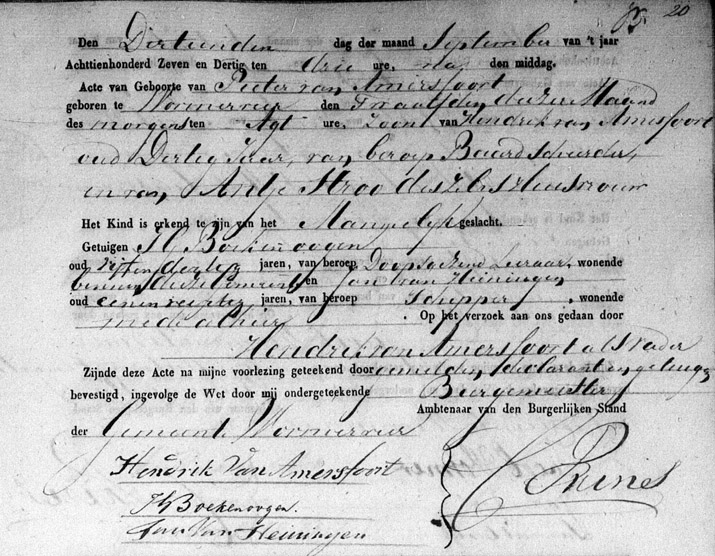 20
Den Dertienden dag der maand September van 't jaar
Achttienhonderd Zeven en Dertig ten drie ure, na den middag.
Acte van Geboorte van Pieter van Amersfoort
geboren te Wormerveer den Twaalfden dezer Maand
des morgens ten Agt ure, Zoont van Hendrik van Amersfoort
oud Dertig Jaar, van beroep Baardscheerder,
en van Antje Stroo deszelfs Huisvrouw
Het Kind is erkend te zijn van het Mannelijk geslacht.
Getuigen H Boekenoogen
oud Vijf en dertig jaren, van beroep Doopsgezind Leeraar, wonende
binnen deze Gemeente en Jan van Heiningen
oud eenenveertig jaren, van beroep Schipper, wonende
mede alhier. Op het verzoek aan ons gedaan door
Hendrik van Amersfoort als Vader
Zijnde deze Acte na mijne voorlezing geteekend door gemelden declarant en getuigen
bevestigd, ingevolge de Wet door mij ondergeteekende Burgemeester
Ambtenaar van den Burgerlijken Stand
der Gemeente Wormerveer
Hendrik Van Amersfoort
Boekenoogen.
Jan Van Heiningen
Prins